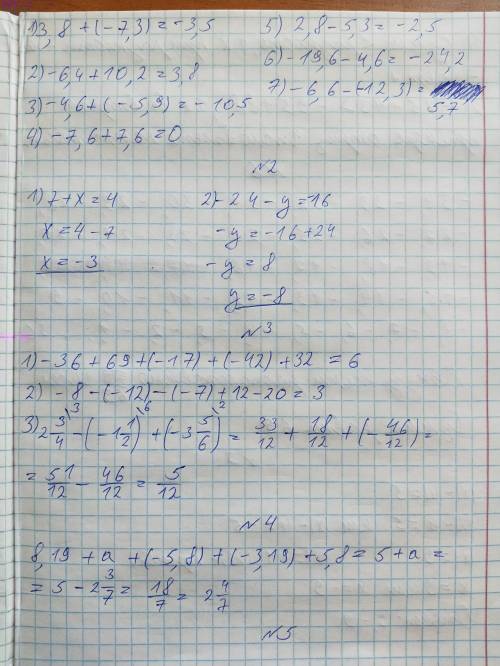 1) 3,8 + (-7,3) = -3,5
2) -6,4 + 10,2 = 3,8
3) -4,6 + (-5,9) = -10,5
4) -7,6 + 7,6 = 0
5) 2,8 - 5,3 = -2,5
6) -19,6 - 4,6 = -24,2
7) -6,6 - (-12,3) =
5,7
№2
1) 7 + x = 4
x = 4 - 7
x = -3
2) -24 - y = -16
-y = -16 + 24
-y = 8
y = -8
№3
1) -36 + 69 + (-17) + (-42) + 32 = 6
2) -8 - (-12) - (-7) + 12 - 20 = 3
3) 2 3/4 \3 - (-1 1/2 \6) + (-3 5/6 \2) = 33/12 + 18/12 + (-46/12) =
= 51/12 - 46/12 = 5/12
№4
8,19 + a + (-5,8) + (-3,19) + 5,8 = 5 + a =
= 5 - 2 3/7 = 18/7 = 2 4/7
№5